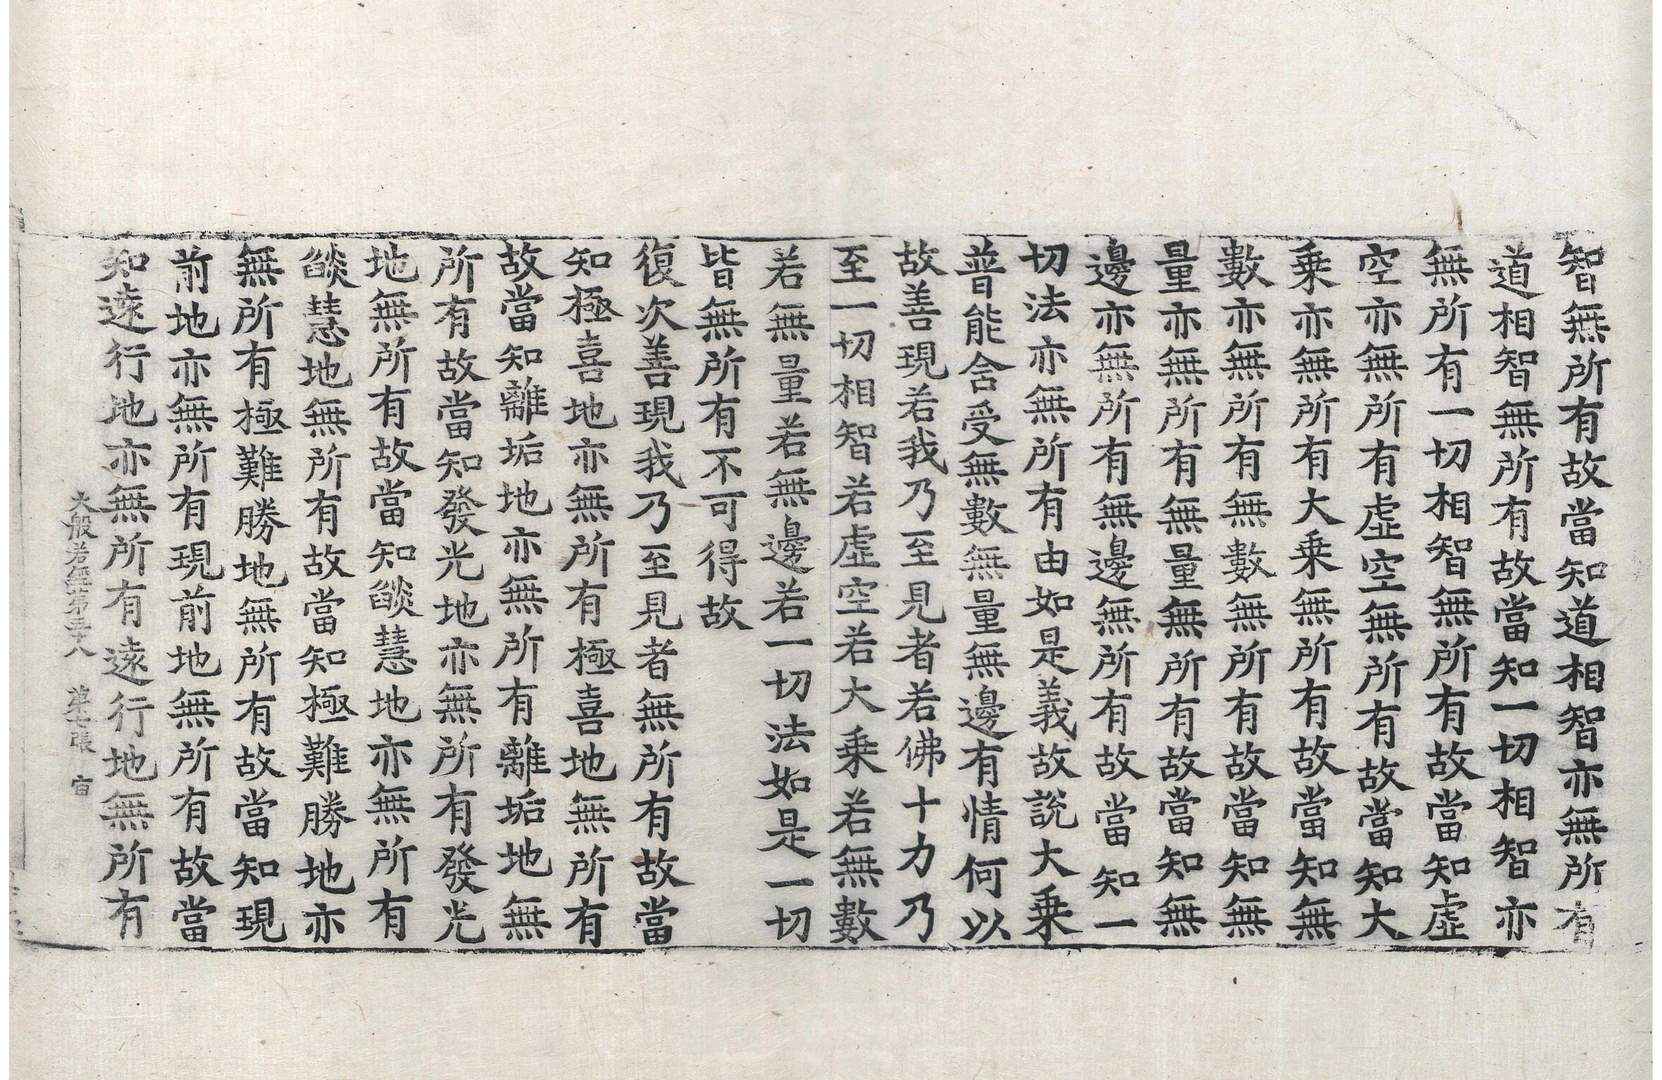 智無所有故當知道相智亦無所有
道相智無所有故當知一切相智亦
無所有一切相智無所有故當知虛
空亦無所有虛空無所有故當知大
乘亦無所有大乘無所有故當知無
數亦無所有無數無所有故當知無
量亦無所有無量無所有故當知無
邊亦無所有無邊無所有故當知一
切法亦無所有由如是義故說大乘
普能含受無數無量無邊有情何以
故善現若我乃至見者若佛十力乃
至一切相智若虛空若大乘若無數
若無量若無邊若一切法如是一切
皆無所有不可得故
復次善現我乃至見者無所有故當
知極喜地亦無所有極喜地無所有
故當知離垢地亦無所有離垢地無
所有故當知發光地亦無所有發光
地無所有故當知燄慧地亦無所有
燄慧地無所有故當知極難勝地亦
無所有極難勝地無所有故當知現
前地亦無所有現前地無所有故當
知遠行地亦無所有遠行地無所有
大般若經第五十八 第七張 宙